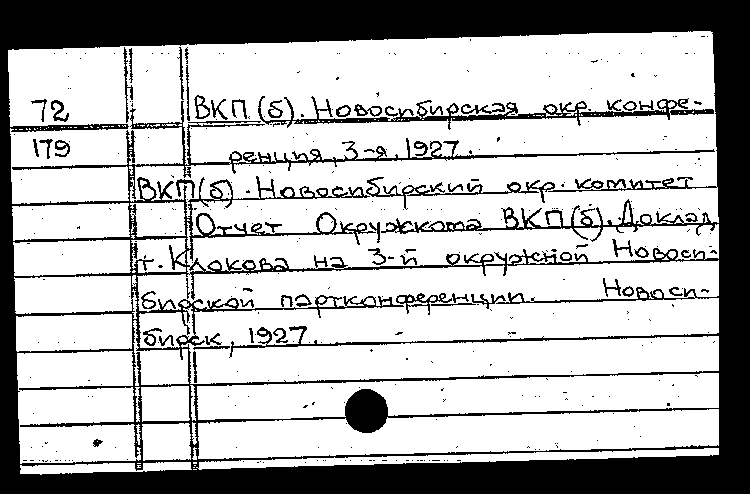 72 ВКП(б). Новосибирская окр. конфе-
179 ренция, 3-я, 1927.
ВКП(б). Новосибирский окр. комитет
Отчет Окружкома ВКП(б). Доклад
т. Клокова на 3-й окружной Новоси-
бирской партконференции. Новоси-
бирск, 1927.